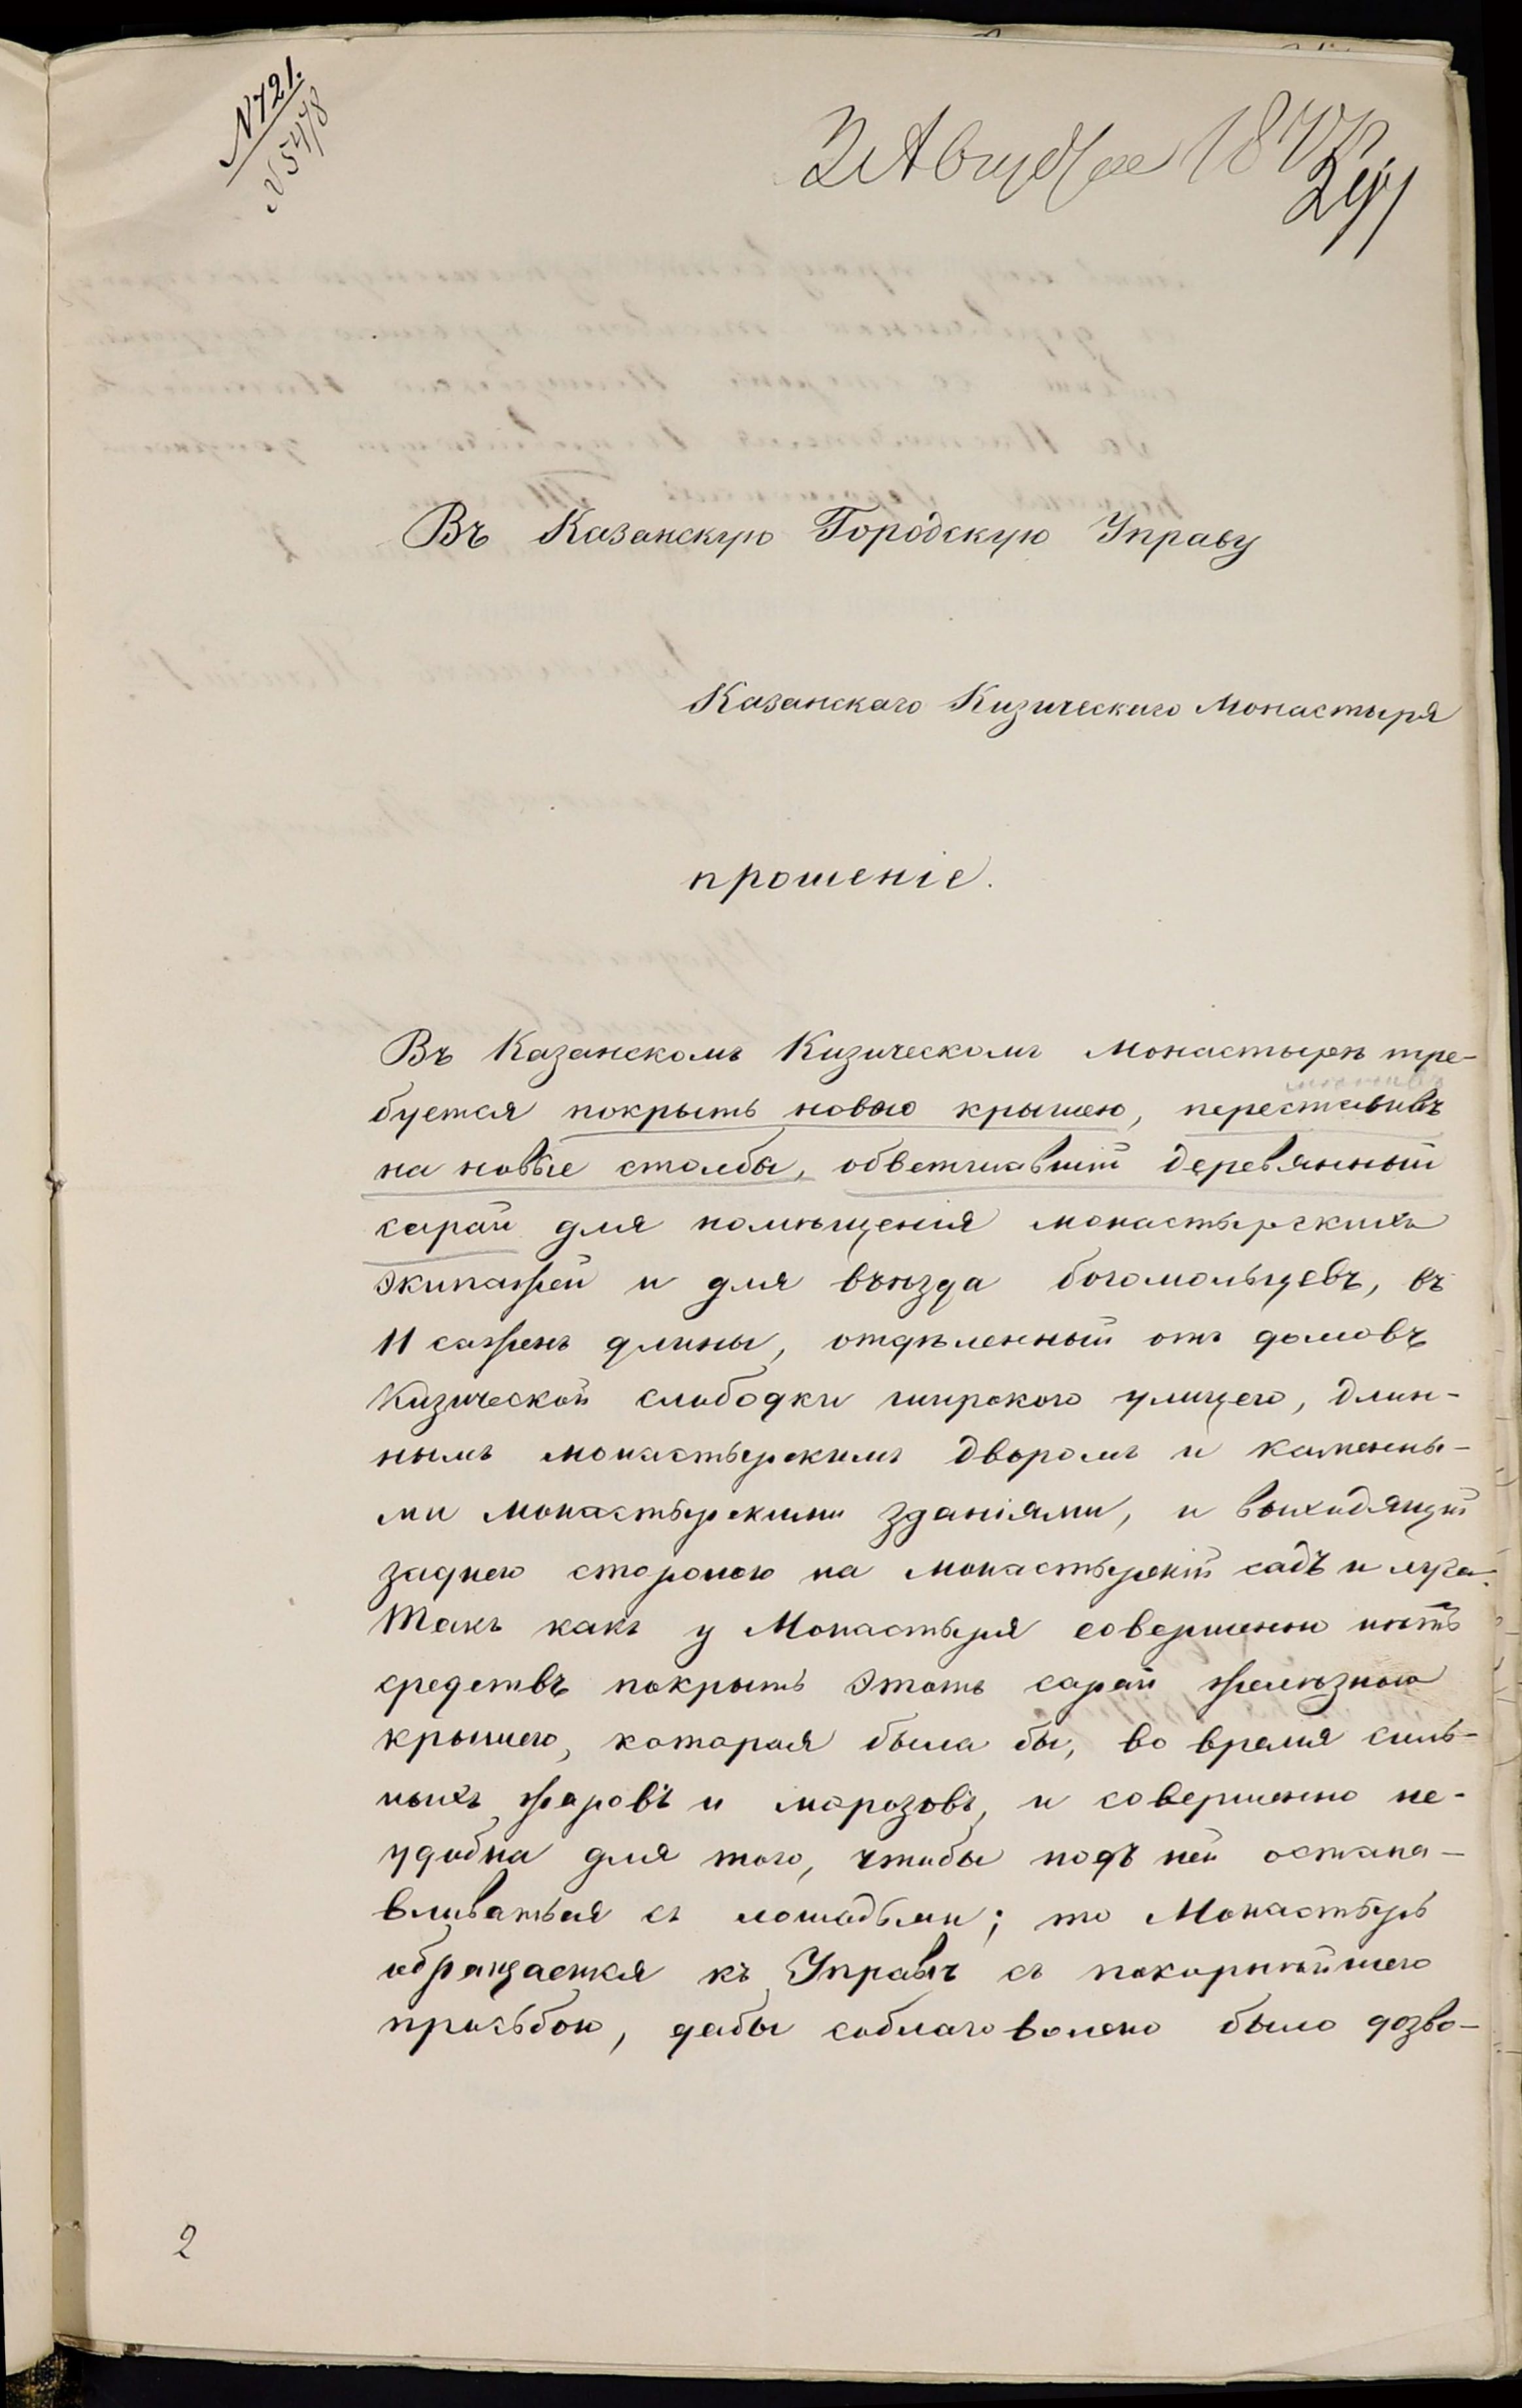 N 721.
N 5478
3 Августа 1877
297
Въ Казанскую Городскую Управу
Казанскаго Кизическаго Монастыря
прошеніе.
Въ Казанскомъ Кизическомъ Монастырѣ тре-
буется покрыть новою крышею, переставивъ
на новые столбы, обветшавшій деревянный
сарай для помѣщенія монастырскихъ
экипажей и для въѣзда богомольцевъ, въ
11 сажень длины, отдѣленный отъ домовъ
Кизической слободки широкою улицею, длин-
нымъ монастырскимъ дворомъ и каменны-
ми монастырскими зданіями, и выходящій
заднею стороною на монастырскій садъ и луга.
Такъ какъ у Монастыря совершенно нѣтъ
средствъ покрыть этотъ сарай желѣзною
крышею, которая была бы, во время силь-
ныхъ жаровъ и морозовъ, и совершенно не-
удобна для того, чтобы подъ ней остана-
вливаться съ лошадьми; то Монастырь
обращается къ Управѣ съ покорнѣйшею
просьбою, дабы соблаговолено было дозво-
2